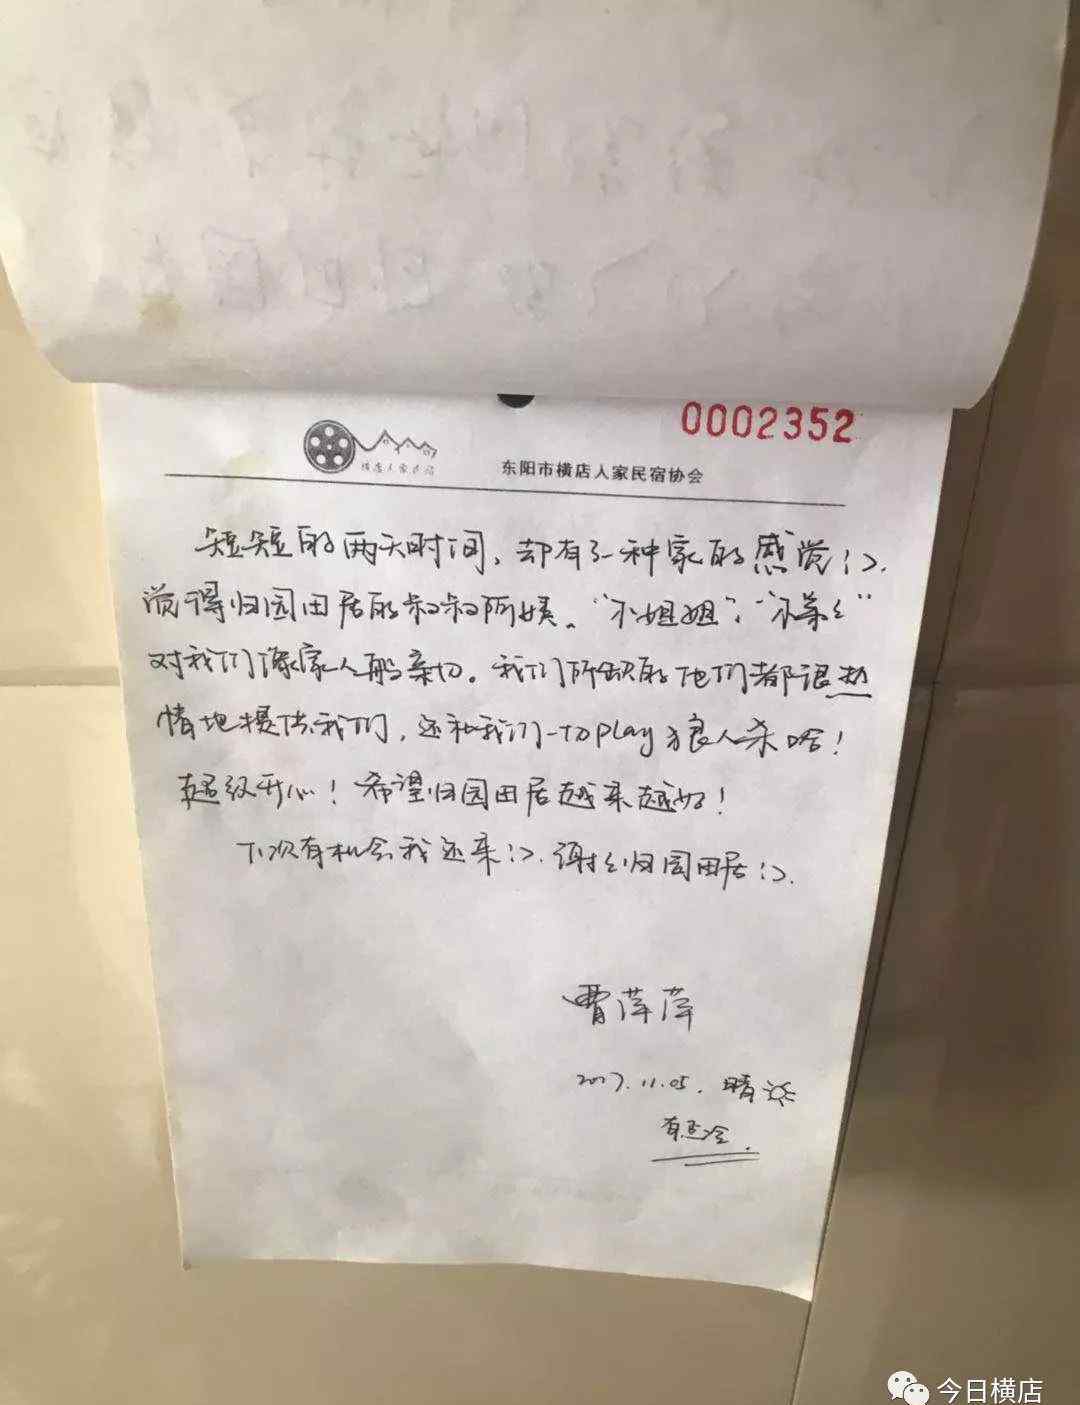 0002352
横店人家民宿
东阳市横店人家民宿协会
短短的两天时间，却有了一种家的感觉:).
觉得归园田居的叔叔阿姨、“小姐姐”、
对我们像家人般亲切。我们所缺的他们都很热
情地提供我们，还和我们一to play 狼人杀哈！
超级开心！希望归园田居越来越好！
下次有机会我还来:).谢谢归园田居:).
曹萍萍
2017.11.05. 晴
有点冷.
今日横店